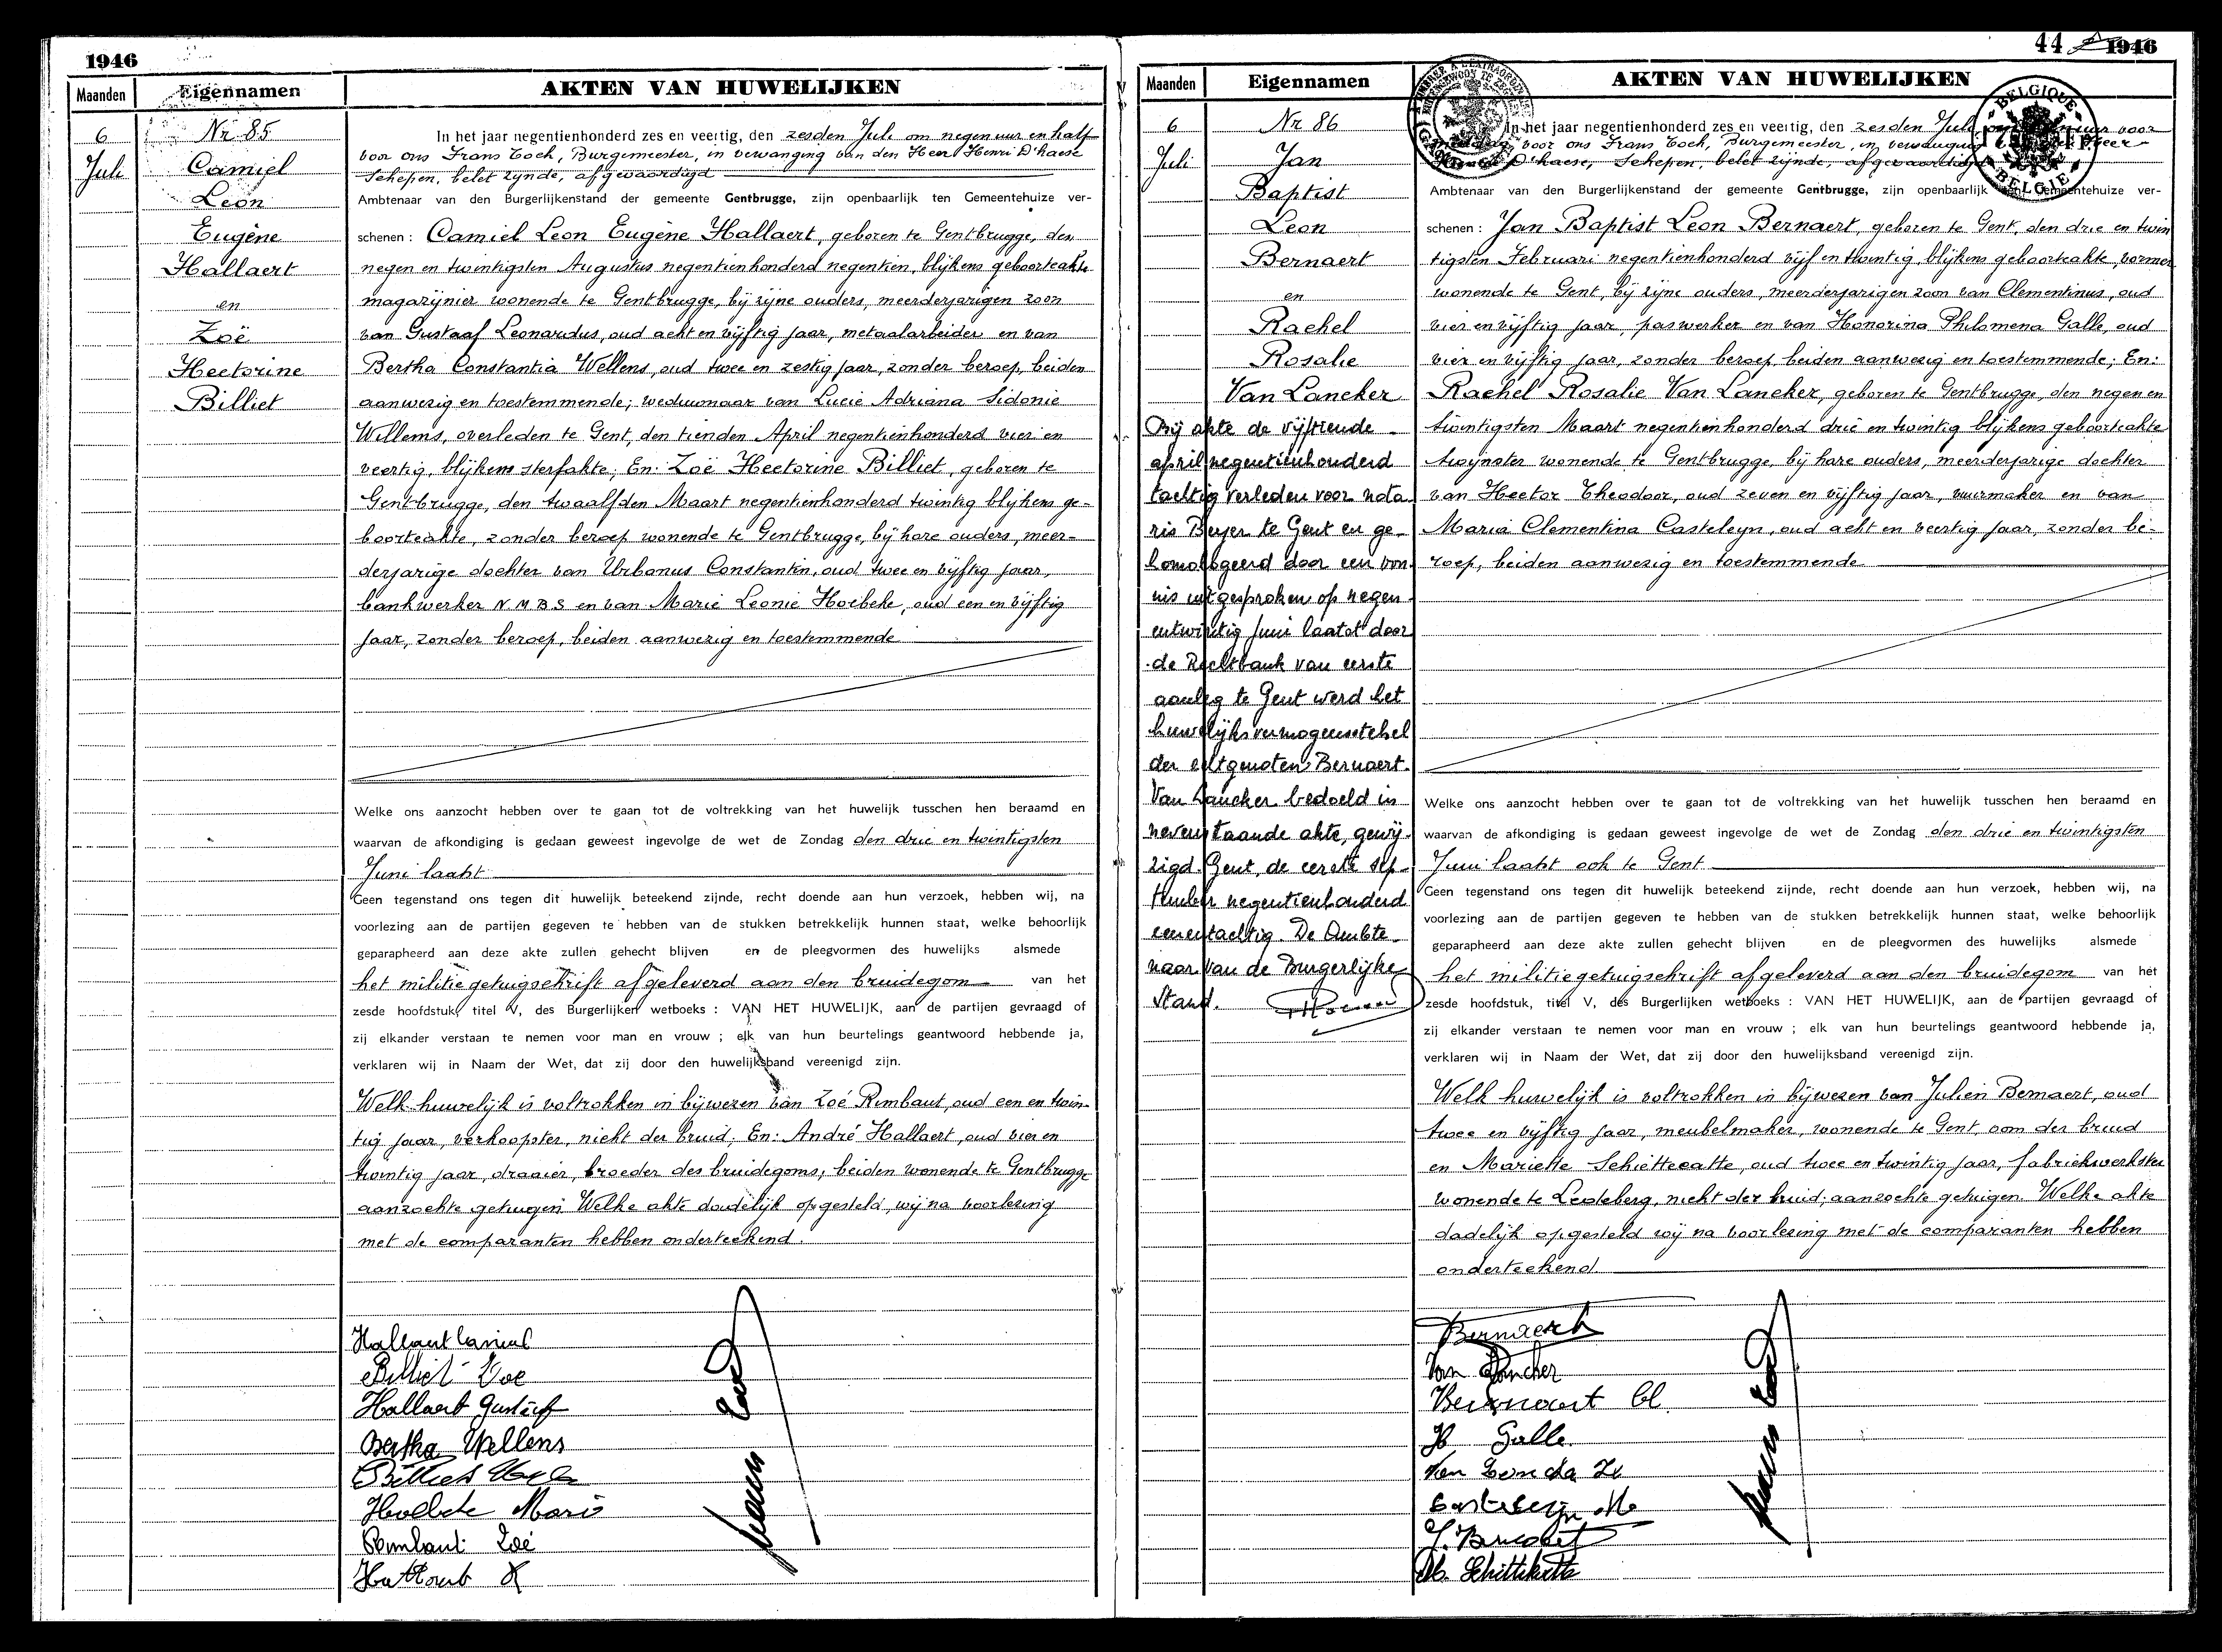 1946
Maanden
Eigennamen
AKTEN VAN HUWELIJKEN
6
Juli
Nr 85
Camiel
Leon
Eugène
Hallaert
en
Zoë
Hectorine
Billiet
In het jaar negentienhonderd zes en veertig, den zesden Juli om negen uur en half
voor ons Frans Toch, Burgemeester, in vervanging van den Heer Henri D'haese
Schepen, belet zijnde, afgevaardigd
Ambtenaar van den Burgerlijkenstand der gemeente Gentbrugge, zijn openbaarlijk ten Gemeentehuize ver-
schenen : Camiel Leon Eugène Hallaert, geboren te Gentbrugge, den
negen en twintigsten Augustus negentienhonderd negentien, blijkens geboorteakte
magazijnier wonende te Gentbrugge, bij zijne ouders, meerderjarigen zoon
van Gustaaf Leonardus, oud acht en vijftig jaar, metaalarbeider en van
Bertha Constantia Wellens, oud twee en zestig jaar, zonder beroep, beiden
aanwezig en toestemmende; weduwnaar van Lucie Adriana Sidonie
Willems, overleden te Gent, den tienden April negentienhonderd vier en
veertig, blijkens sterfakte; En: Zoë Hectorine Billiet, geboren te
Gentbrugge, den twaalfden Maart negentienhonderd twintig blijkens ge-
boorteakte, zonder beroep wonende te Gentbrugge, bij hare ouders, meer-
derjarige dochter van Urbanus Constantin, oud twee en vijftig jaar,
bankwerker N M B S en van Marie Leonie Hoebeke, oud een en vijftig
jaar, zonder beroep, beiden aanwezig en toestemmende
Welke ons aanzocht hebben over te gaan tot de voltrekking van het huwelijk tusschen hen beraamd en
waarvan de afkondiging is gedaan geweest ingevolge de wet de Zondag den drie en twintigsten
Juni laatst
Geen tegenstand ons tegen dit huwelijk beteekend zijnde, recht doende aan hun verzoek, hebben wij, na
voorlezing aan de partijen gegeven te hebben van de stukken betrekkelijk hunnen staat, welke behoorlijk
geparapheerd aan deze akte zullen gehecht blijven en de pleegvormen des huwelijks alsmede
het militiegetuigschrift afgeleverd aan den bruidegom van het
zesde hoofdstuk, titel V, des Burgerlijken wetboeks : VAN HET HUWELIJK, aan de partijen gevraagd of
zij elkander verstaan te nemen voor man en vrouw ; elk van hun beurtelings geantwoord hebbende ja,
verklaren wij in Naam der Wet, dat zij door den huwelijksband vereenigd zijn.
Welk huwelijk is voltrokken in bijwezen van Zoé Rimbaut, oud een en twin-
tig jaar, verkoopster, nicht der bruid; En: André Hallaert, oud vier en
twintig jaar, draaier, broeder des bruidegoms; beiden wonende te Gentbrugge
aanzochte getuigen. Welke akte dadelijk opgesteld, wij na voorlezing
met de comparanten hebben onderteekend.
Hallaert Camiel
Billiet Zoe
Hallaert Gustaaf
Bertha Wellens
Billiet
Hoebeke Marie
Rimbaut Zoé
Hallaert A
Frans Toch
44
1946
Maanden
Eigennamen
AKTEN VAN HUWELIJKEN
BELGIQUE
BELGIE
6
Juli
Nr 86
Jan
Baptist
Leon
Bernaert
en
Rachel
Rosalie
Van Lancker
Bij akte de vijftiende
april negentienhonderd
tachtig verleden voor nota-
ris Beyer te Gent en ge-
homologeerd door een von-
nis uitgesproken op negen-
entwintig juni laatst door
de Rechtbank van eerste
aanleg te Gent werd het
huwelijksvermogensstelsel
der echtgenoten Bernaert-
Van Lancker bedoeld in
nevenstaande akte, gewij-
zigd. Gent, de eerste sep-
tember negentienhonderd
eenentachtig. De Ambte-
naar van de Burgerlijke
Stand.
In het jaar negentienhonderd zes en veertig, den zesden Juli uur voor
voor ons Frans Toch, Burgemeester, in vervanging Heer
D'haese, Schepen, belet zijnde, afgevaardigd
Ambtenaar van den Burgerlijkenstand der gemeente Gentbrugge, zijn openbaarlijk ten Gemeentehuize ver-
schenen : Jan Baptist Leon Bernaert, geboren te Gent, den drie en twin
tigsten Februari negentienhonderd vijf en twintig, blijkens geboorteakte, vormer
wonende te Gent, bij zijne ouders, meerderjarigen zoon van Clementinus, oud
vier en vijftig jaar, paswerker en van Honorina Philomena Galle, oud
vier en vijftig jaar, zonder beroep, beiden aanwezig en toestemmende; En:
Rachel Rosalie Van Lancker, geboren te Gentbrugge, den negen en
twintigsten Maart negentienhonderd drie en twintig blijkens geboorteakte
twijnster wonende te Gentbrugge, bij hare ouders, meerderjarige dochter
van Hector Theodoor, oud zeven en vijftig jaar, vuurmaker en van
Maria Clementina Casteleyn, oud acht en veertig jaar, zonder be-
roep, beiden aanwezig en toestemmende
Welke ons aanzocht hebben over te gaan tot de voltrekking van het huwelijk tusschen hen beraamd en
waarvan de afkondiging is gedaan geweest ingevolge de wet de Zondag den drie en twintigsten
Juni laatst ook te Gent
Geen tegenstand ons tegen dit huwelijk beteekend zijnde, recht doende aan hun verzoek, hebben wij, na
voorlezing aan de partijen gegeven te hebben van de stukken betrekkelijk hunnen staat, welke behoorlijk
geparapheerd aan deze akte zullen gehecht blijven en de pleegvormen des huwelijks alsmede
het militiegetuigschrift afgeleverd aan den bruidegom van het
zesde hoofdstuk, titel V, des Burgerlijken wetboeks : VAN HET HUWELIJK, aan de partijen gevraagd of
zij elkander verstaan te nemen voor man en vrouw ; elk van hun beurtelings geantwoord hebbende ja,
verklaren wij in Naam der Wet, dat zij door den huwelijksband vereenigd zijn.
Welk huwelijk is voltrokken in bijwezen van Julien Bernaert, oud
twee en vijftig jaar, meubelmaker, wonende te Gent, oom der bruid
en Mariette Schiettecatte, oud twee en twintig jaar, fabriekwerkster
wonende te Ledeberg, nicht der bruid; aanzochte getuigen. Welke akte
dadelijk opgesteld wij na voorlezing met de comparanten hebben
onderteekend
Bernaert
Van Lancker
Bernaert Cl.
H Galle
Casteleyn M
J. Bernaert
M. Schittekatte
Frans Toch